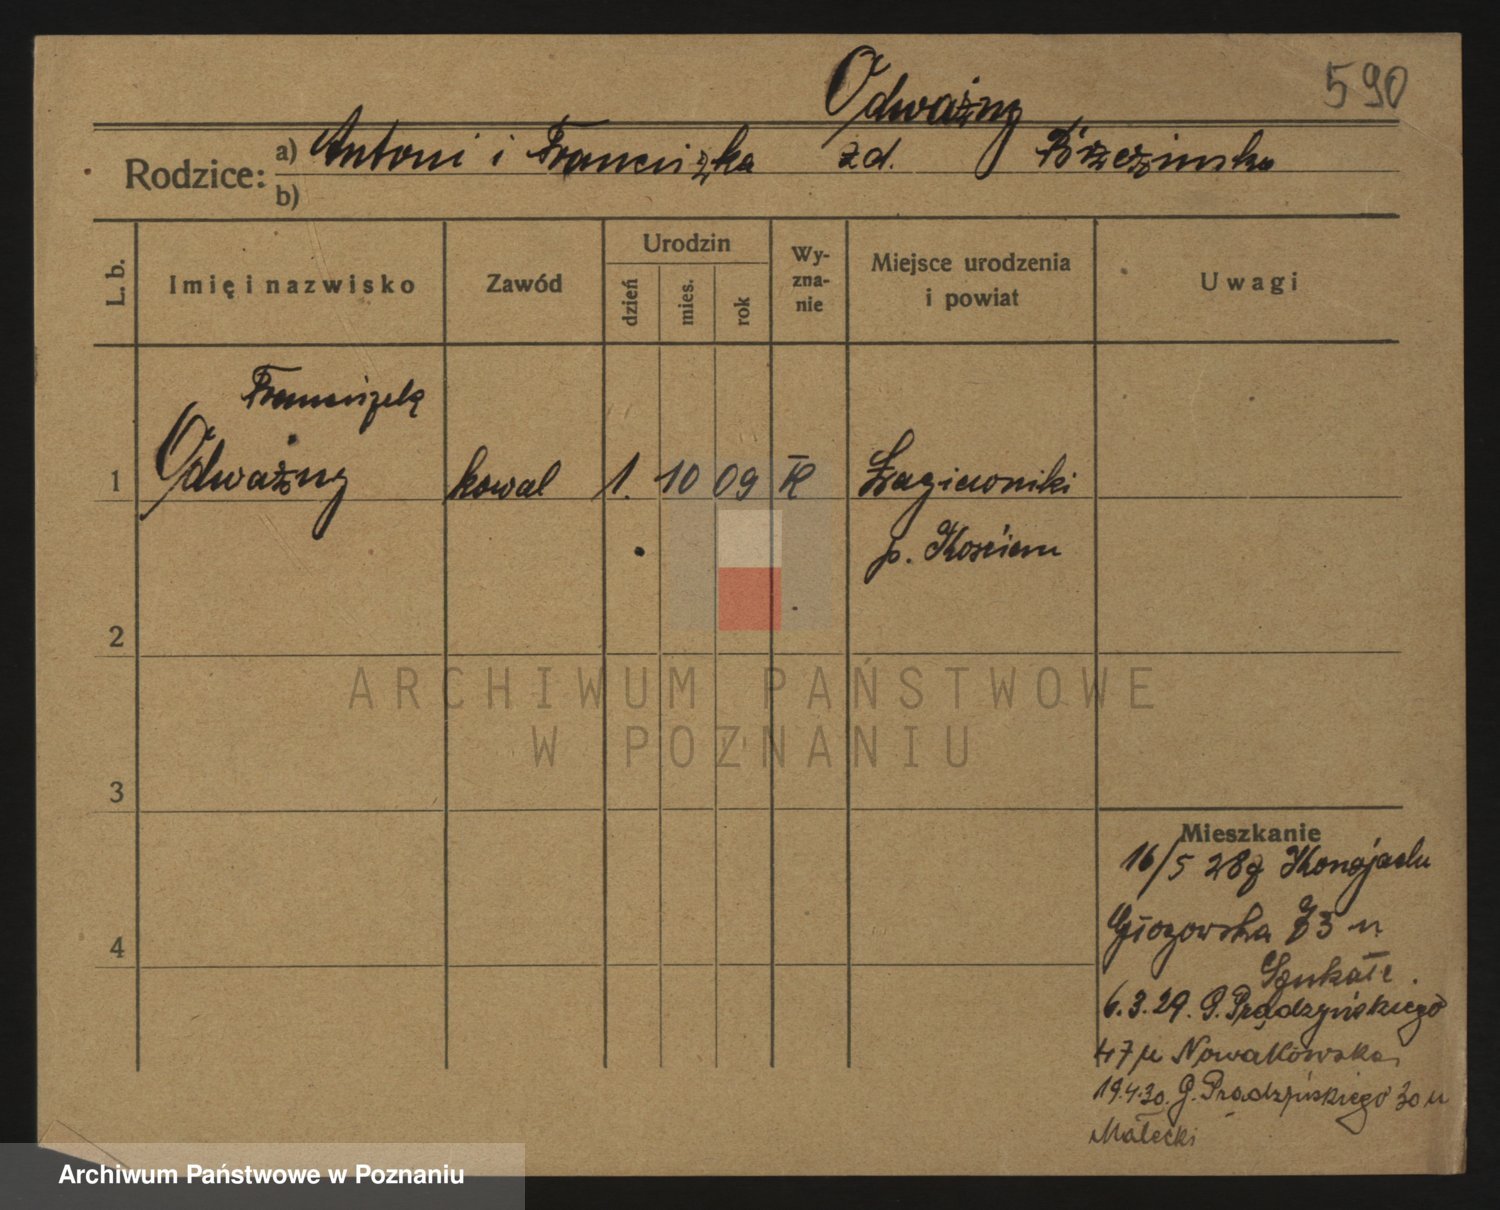 590
Odważny
Rodzice: a) Antoni i Franciszka zd. Brzezinska
b)
L. b. Imię i nazwisko Zawód Urodzin dzień mies. rok Wyznanie Miejsce urodzenia i powiat Uwagi
Franciszek
1 Odważny kowal 1. 10 09 K Łagiewniki
p. Kościan
2
ARCHIWUM PAŃSTWOWE
W POZNANIU
3
Mieszkanie
16/5 28 z Konojadu
4 Głogowska 73 u
Szukałe.
6.3.29. G. Prądzyńskiego
47 u Nowakowska
19.4.30. G. Prądzyńskiego 30 u
Małecki
Archiwum Państwowe w Poznaniu